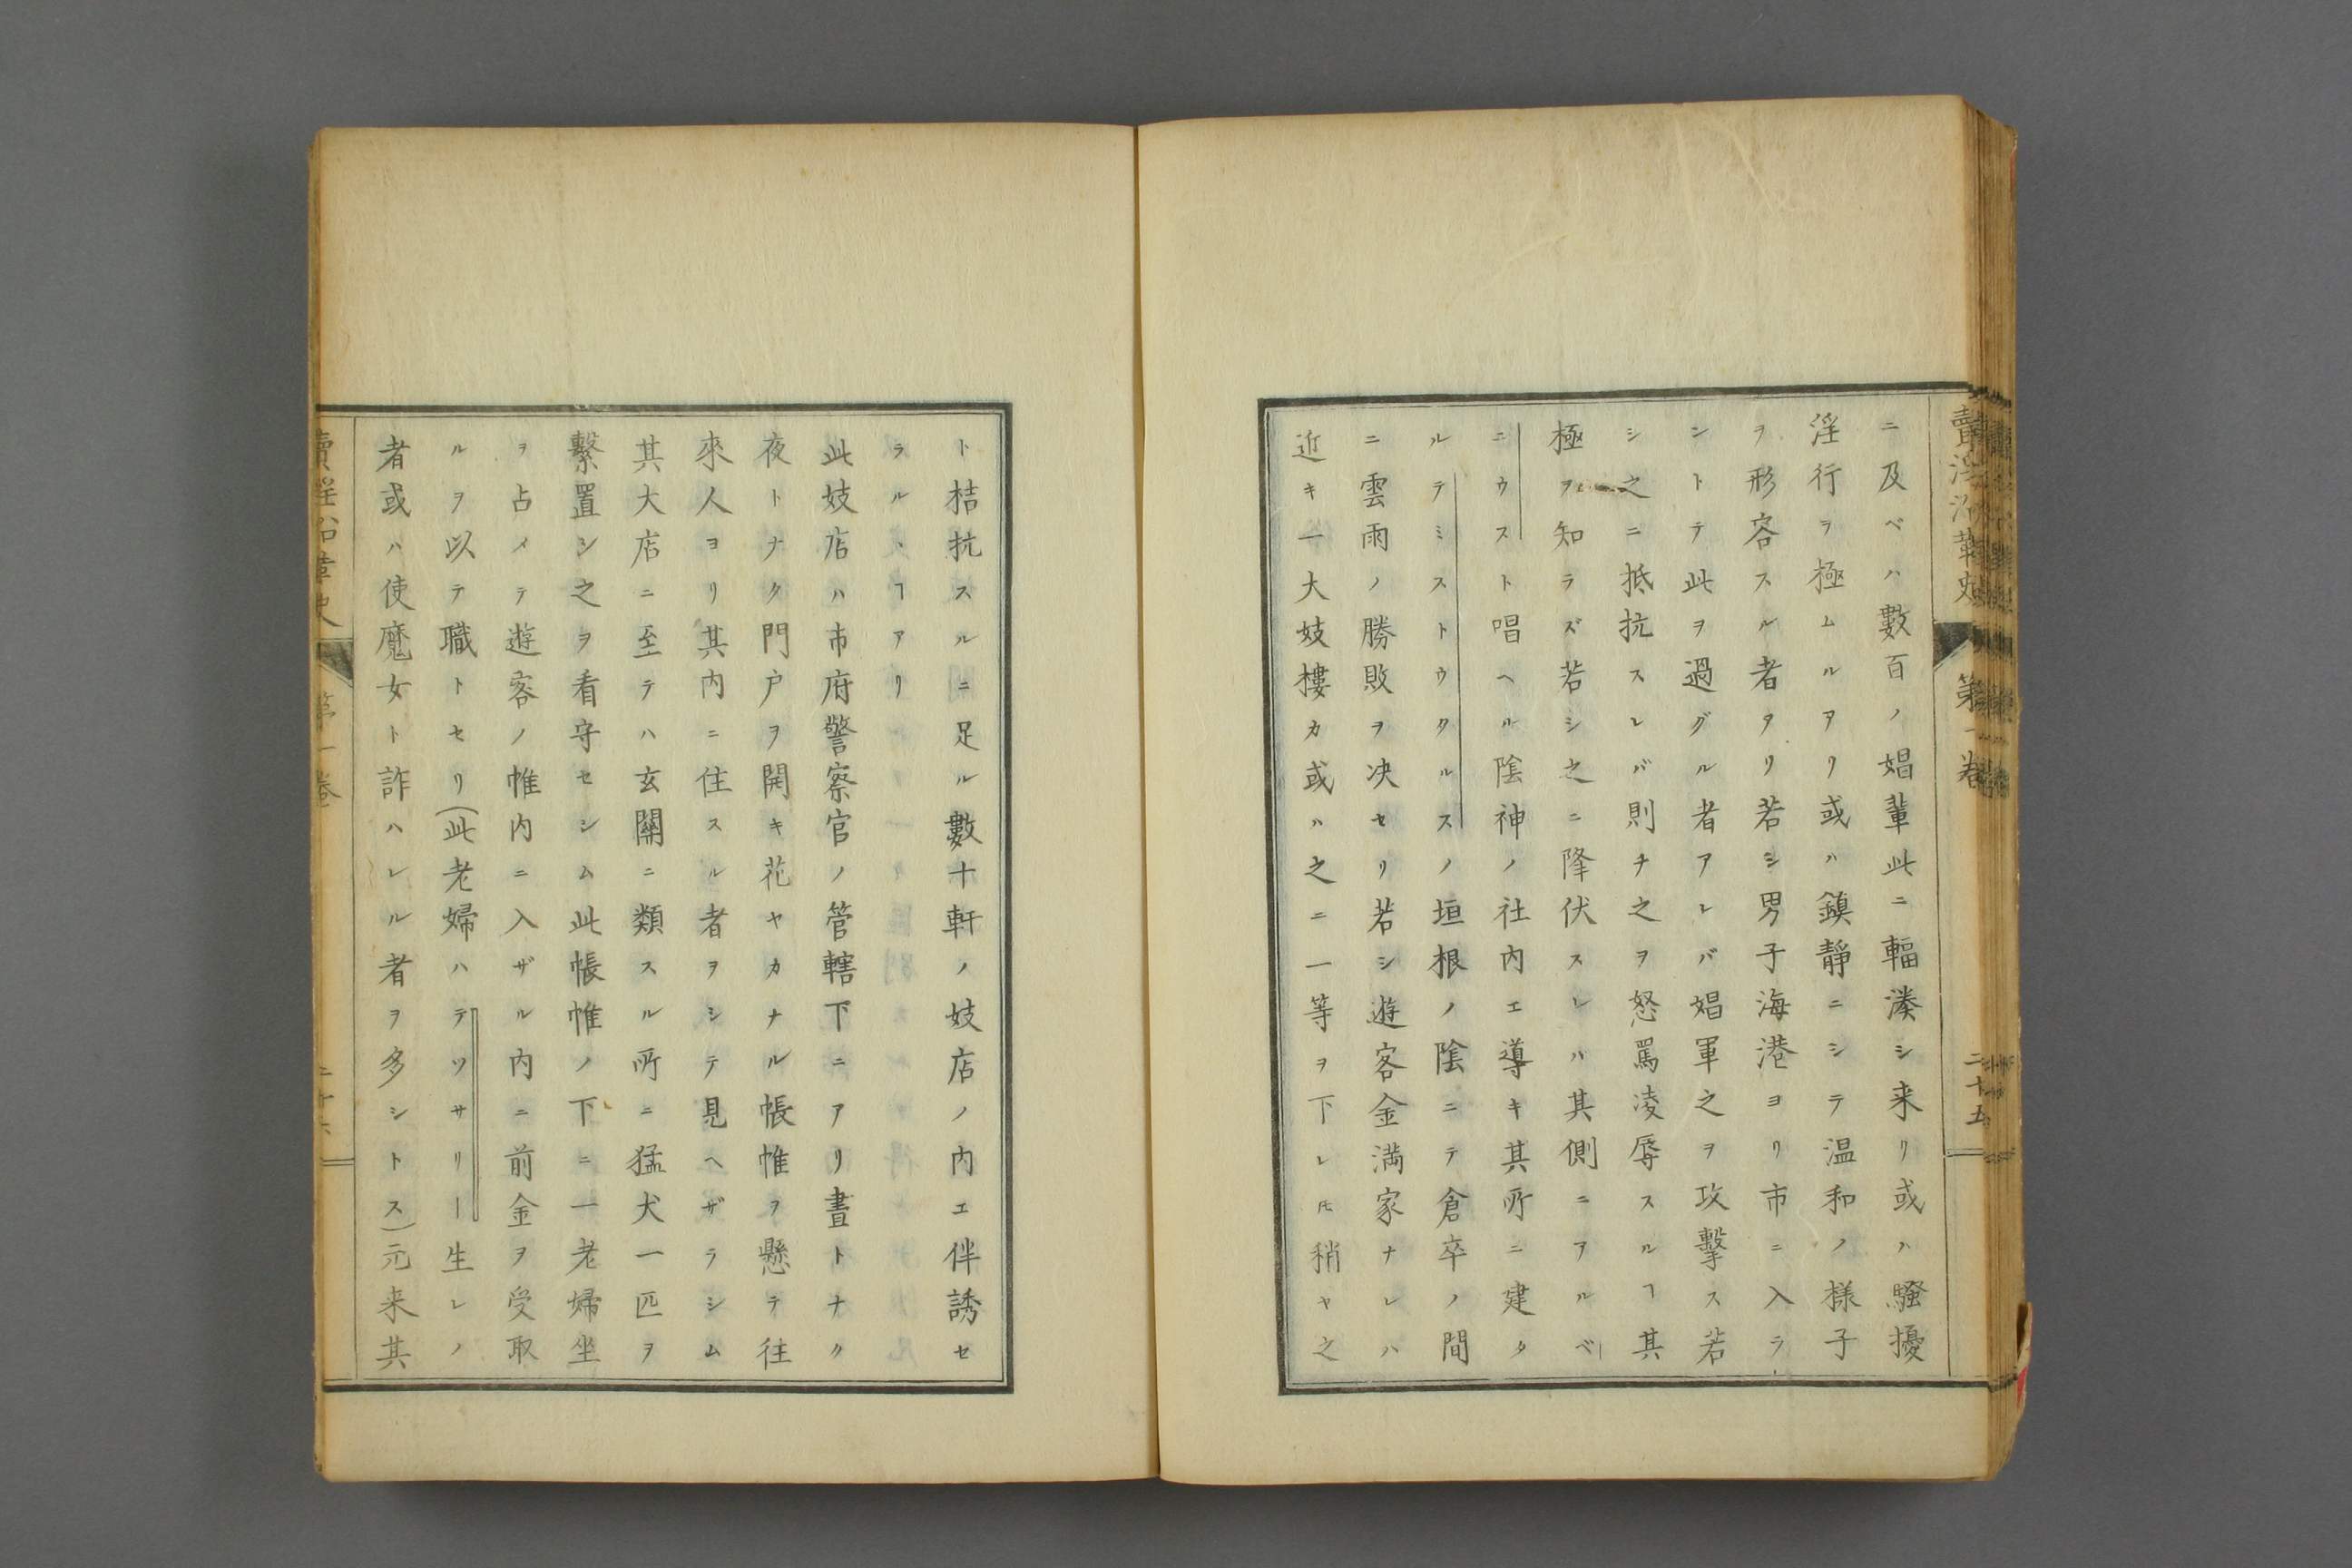 賣淫沿革史
第一卷
二十五
ニ及ベハ數百ノ娼輩此ニ輻湊シ来リ或ハ騒擾
淫行ヲ極ムルアリ或ハ鎮靜ニシテ温和ノ様子
ヲ形容スル者アリ若シ男子海港ヨリ市ニ入ラン
シトテ此ヲ過グル者アレバ娼軍之ヲ攻撃ス若
シ之ニ抵抗スレバ則チ之ヲ怒罵凌辱スルヿ其
極ヲ知ラズ若シ之ニ降伏スレハ其側ニアルベ
ニウスト唱ヘル陰神ノ社内エ導キ其所ニ建タ
ルテミストウクルスノ垣根ノ陰ニテ倉卒ノ間
ニ雲雨ノ勝敗ヲ决セリ若シ遊客金満家ナレハ
近キ一大妓樓カ或ハ之ニ一等ヲ下レ𪜈稍ヤ之
ト桔抗スルニ足ル數十軒ノ妓店ノ内エ伴誘セ
ラルヽヿアリ
此妓店ハ市府警察官ノ管轄下ニアリ晝トナク
夜トナク門戸ヲ開キ花ヤカナル帳帷ヲ懸テ往
來人ヨリ其内ニ住スル者ヲシテ見ヘザラシム
其大店ニ至テハ玄關ニ類スル所ニ猛犬一匹ヲ
繋置シ之ヲ看守セシム此帳帷ノ下ニ一老婦坐
ヲ占メテ遊客ノ帷内ニ入ザル内ニ前金ヲ受取
ルヲ以テ職トセリ(此老婦ハテツサリー生レノ
者或ハ使魔女ト詐ハレル者ヲ多シトス)元来其
賣淫沿革史
第一卷
二十六